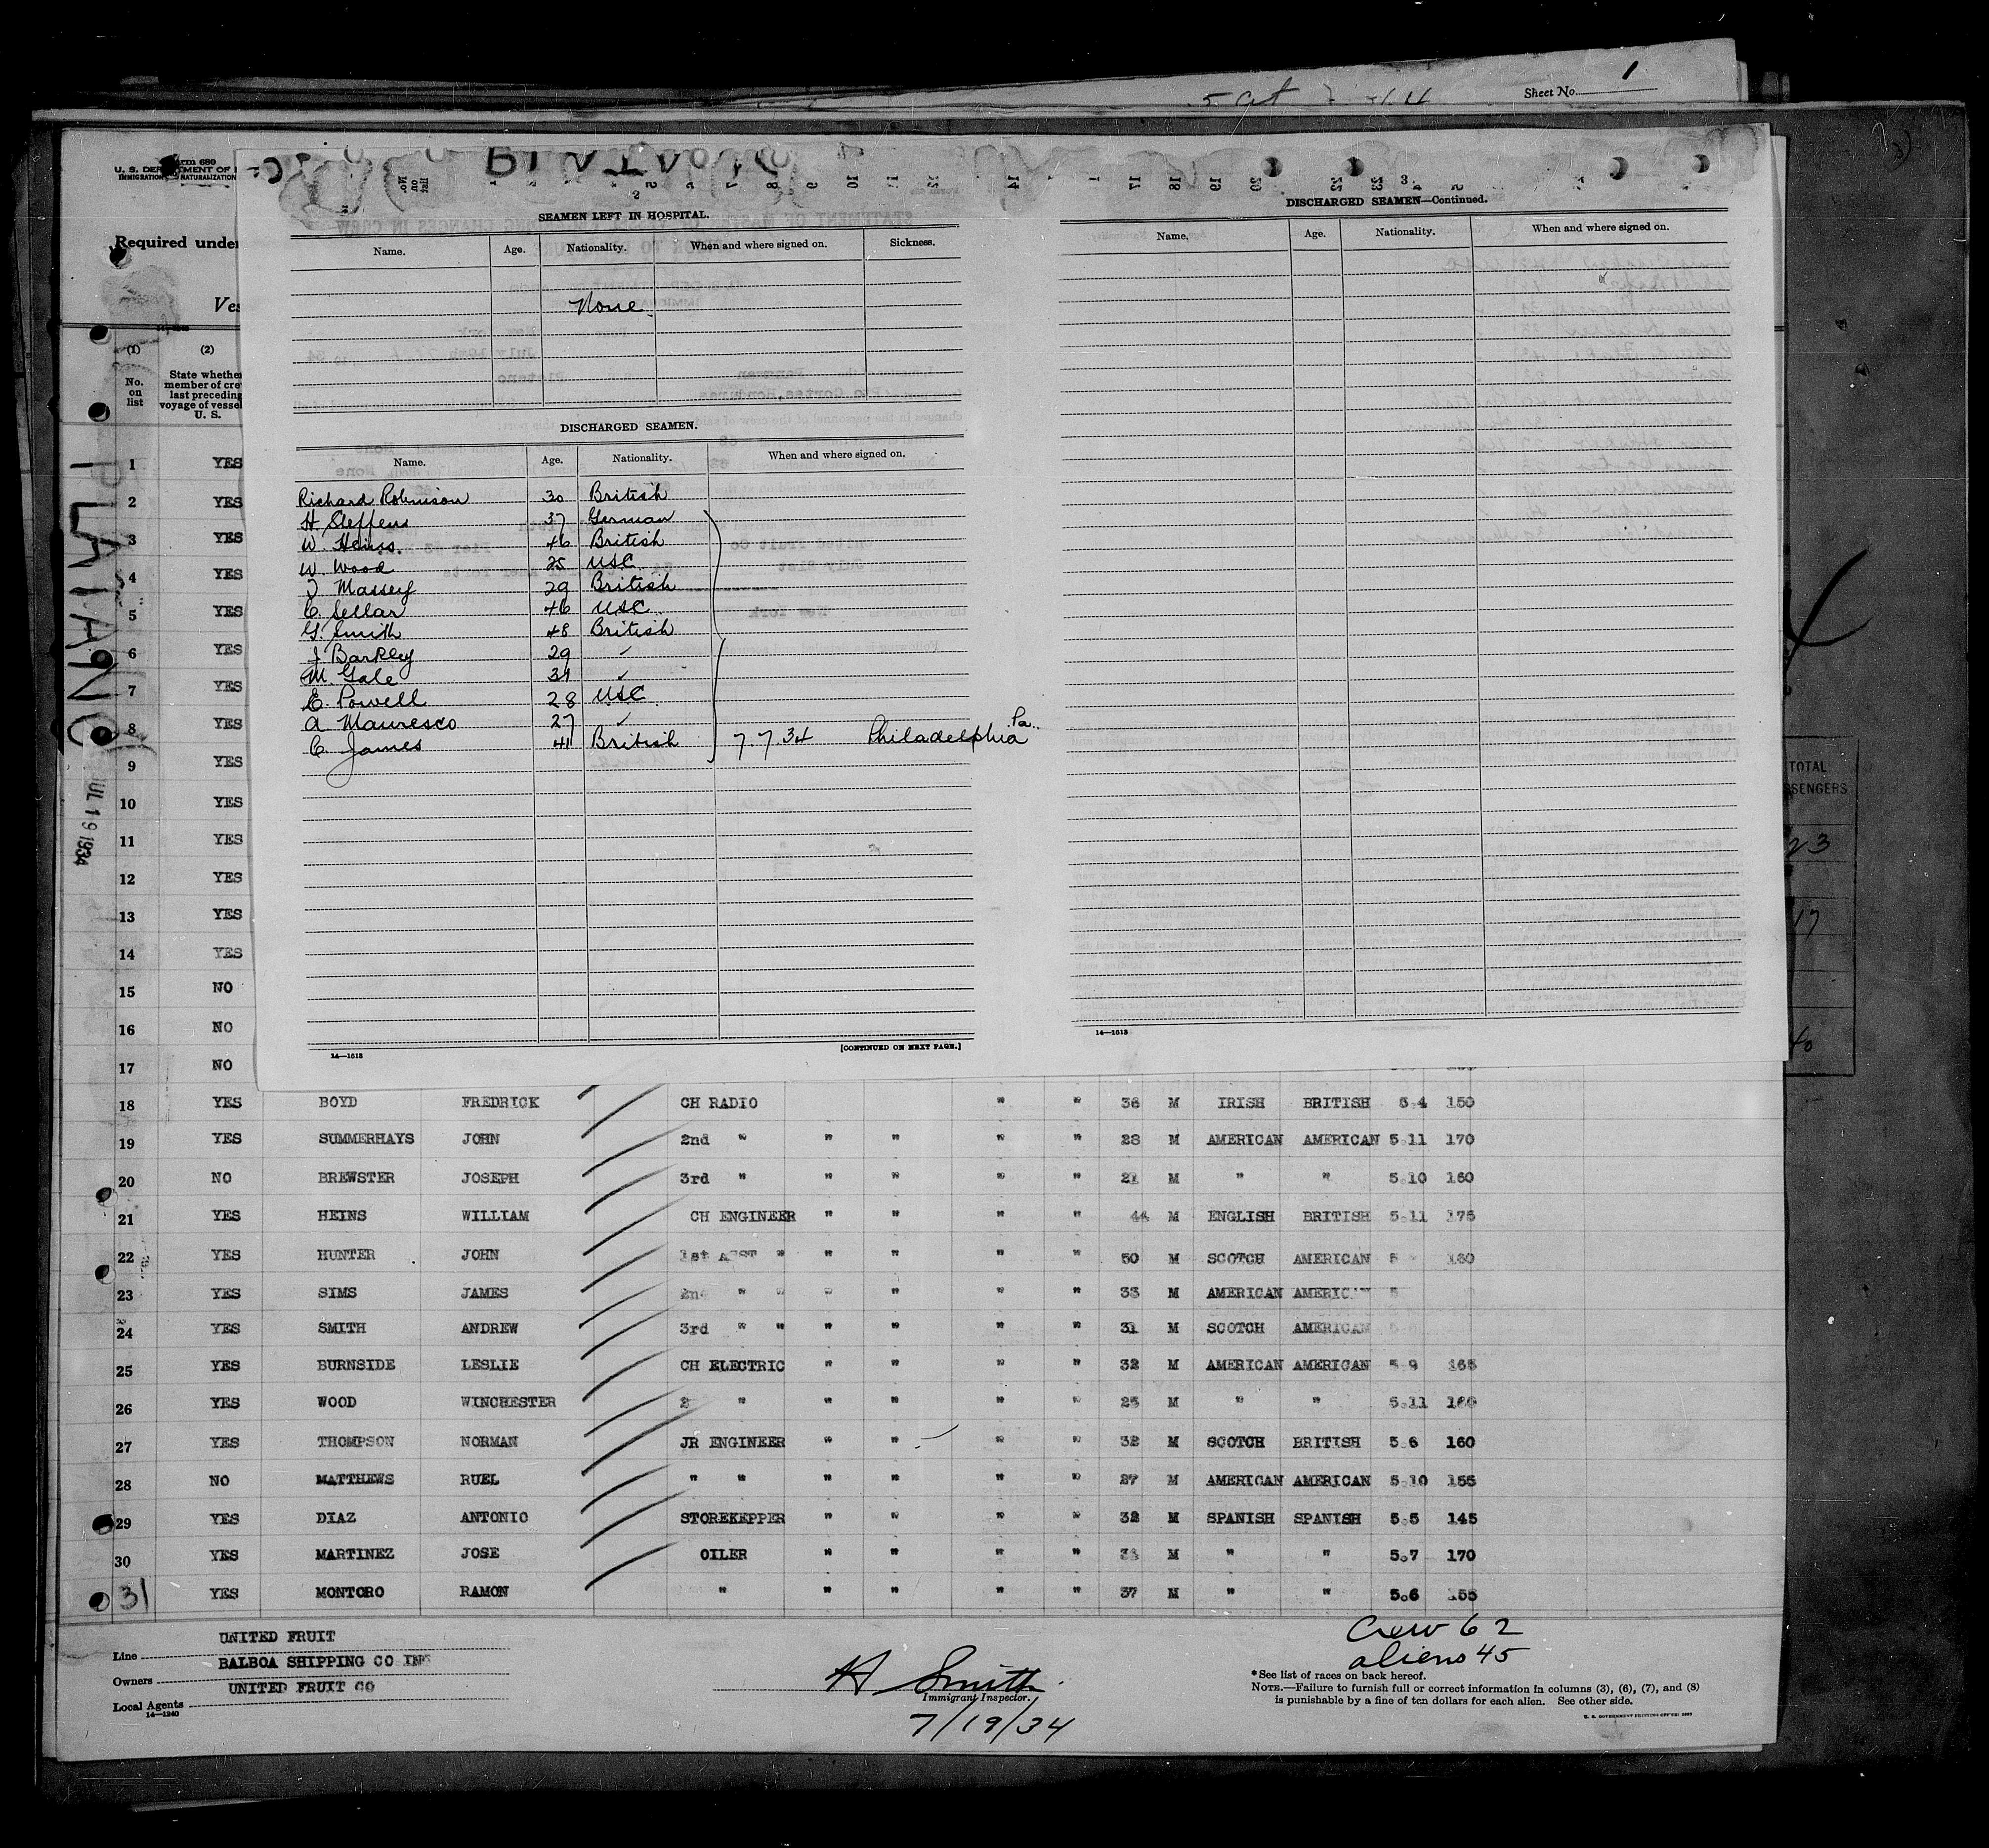 Sheet No. 1
Form 680
U. S. DEPARTMENT OF
IMMIGRATION NATURALIZATION
Required under
PLATANO
JUL 19 1934
(1) (2)
No. on list
State whether
member of crew
last preceding
voyage of vessel
U. S.
1 YES
2 YES
3 YES
4 YES
5 YES
6 YES
7 YES
8 YES
9 YES
10 YES
11 YES
12 YES
13 YES
14 YES
15 NO
16 NO
17 NO
2
SEAMEN LEFT IN HOSPITAL.
Name. Age. Nationality. When and where signed on. Sickness.
None
DISCHARGED SEAMEN.
Name. Age. Nationality. When and where signed on.
Richard Robinson 30 British
H. Steffens 37 German
W. Heins. 46 British
W. Wood 25 USC
J Massey 29 British
C. Sellar 46 USC
G. Smith 48 British
J Barkley 29 ✓
M. Gale 31 ✓
E. Powell 28 USC
A Mauresco 27 ✓
C James 41 British 7.7.34 Philadelphia Pa.
14—1613 [CONTINUED ON NEXT PAGE.]
3
DISCHARGED SEAMEN—Continued.
Name. Age. Nationality. When and where signed on.
14—1613
TOTAL
SENGERS
23
17
40
18 YES BOYD FREDRICK CH RADIO " " 36 M IRISH BRITISH 5.4 150
19 YES SUMMERHAYS JOHN 2nd " " " " " 28 M AMERICAN AMERICAN 5.11 170
20 NO BREWSTER JOSEPH 3rd " " " " " 21 M " " 5.10 160
21 YES HEINS WILLIAM CH ENGINEER " " " " 44 M ENGLISH BRITISH 5.11 175
22 YES HUNTER JOHN 1st ASST " " " " " 50 M SCOTCH AMERICAN 5
23 YES SIMS JAMES 2nd " " " " " " 33 M AMERICAN AMERICAN 5
24 YES SMITH ANDREW 3rd " " " " " " 31 M SCOTCH AMERICAN
25 YES BURNSIDE LESLIE CH ELECTRIC " " " " 32 M AMERICAN AMERICAN 5 9 165
26 YES WOOD WINCHESTER 2 " " " " " 25 M " " 5.11 160
27 YES THOMPSON NORMAN JR ENGINEER " " " " 32 M SCOTCH BRITISH 5 6 160
28 NO MATTHEWS RUEL " " " " " " 27 M AMERICAN AMERICAN 5.10 155
29 YES DIAZ ANTONIO STOREKEPPER " " " " 32 M SPANISH SPANISH 5.5 145
30 YES MARTINEZ JOSE OILER " " " " 38 M " " 5.7 170
31 YES MONTORO RAMON " " " " " 37 M " " 5.6 155
Line UNITED FRUIT
Owners BALBOA SHIPPING CO INC
Local Agents UNITED FRUIT CO
14—1240
H Smith
Immigrant Inspector.
7/19/34
Crew 62
aliens 45
*See list of races on back hereof.
NOTE.—Failure to furnish full or correct information in columns (3), (6), (7), and (8)
is punishable by a fine of ten dollars for each alien. See other side.